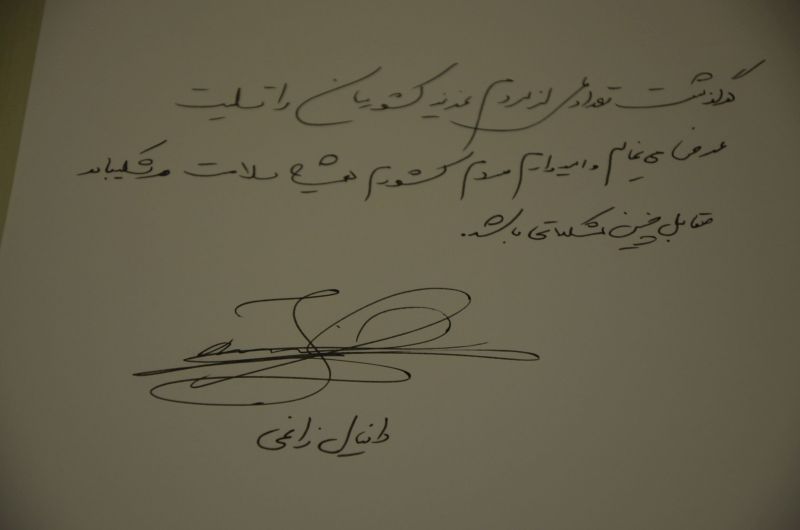 گذشت تعدادی از مردم عزیز کشورمان را تسلیت
عرض می نمایم و امیدوارم مردم کشورم همیشه سلامت و شکیبا در
مقابل چنین مشکلاتی باشد.
دانیال زانمی